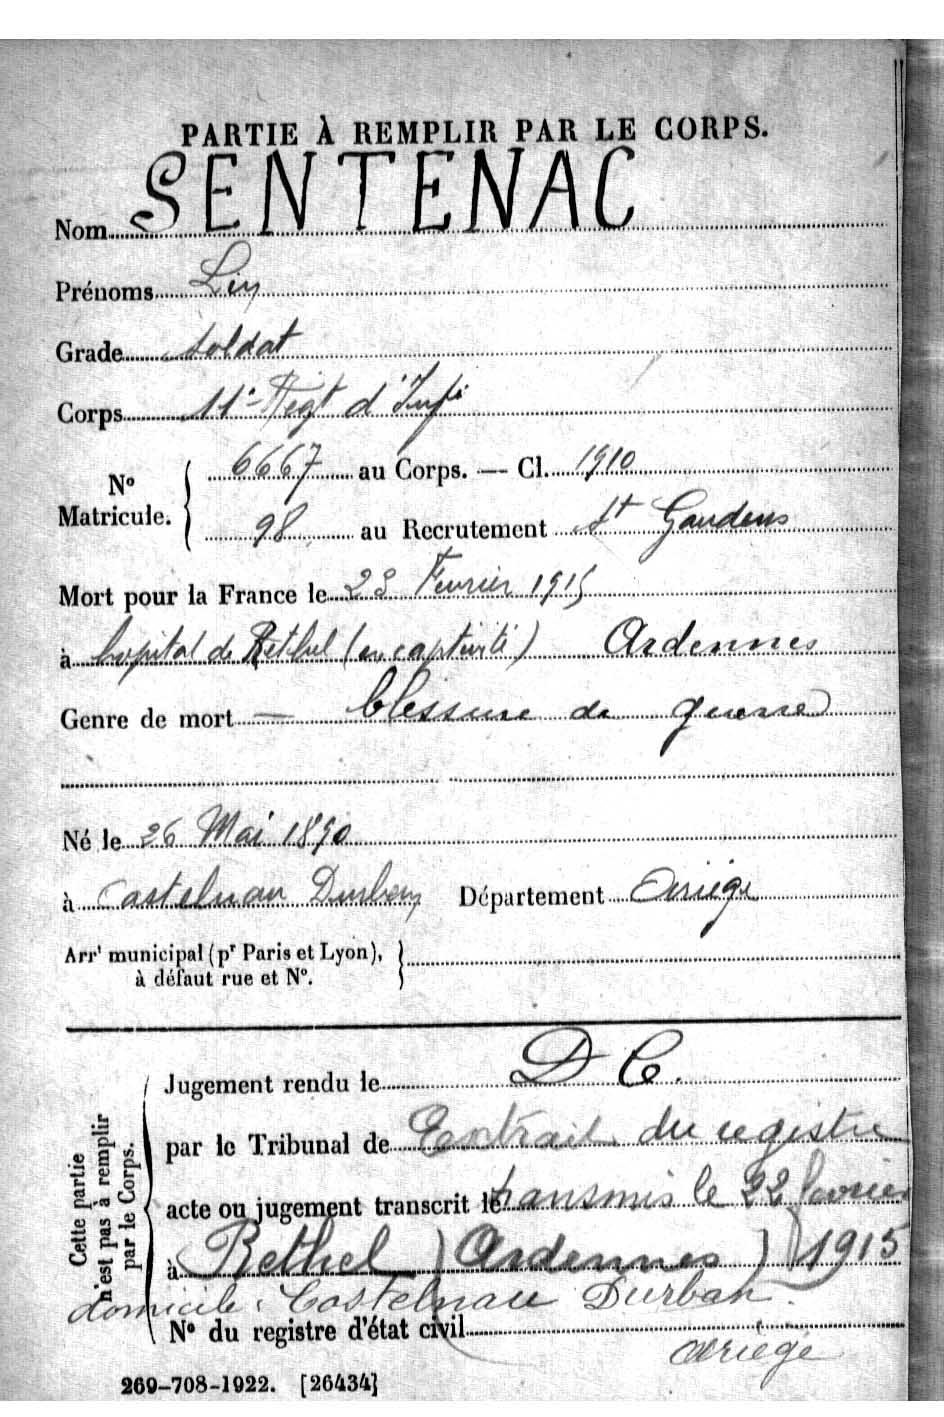 PARTIE À REMPLIR PAR LE CORPS.
Nom SENTENAC
Prénoms
Grade soldat
Corps 11e Régt d'Infie
No Matricule. 6667 au Corps. — Cl. 1910
98 au Recrutement St Gaudens
Mort pour la France le 23 Fevrier 1915
à hopital de Rethel (en captivité) Ardennes
Genre de mort — blessure de guerre
Né le 26 Mai 1890
à Castelnau Durban Département Ariège
Arrt municipal (pr Paris et Lyon),
à défaut rue et No.
Cette partie
n'est pas à remplir
par le Corps.
Jugement rendu le D C.
par le Tribunal de Extrait du registre
acte ou jugement transcrit le transmis le 22 fevrier
à Rethel (Ardennes) 1915
domicile : Castelnau Durban.
No du registre d'état civil
ariège
269-708-1922. [26434]